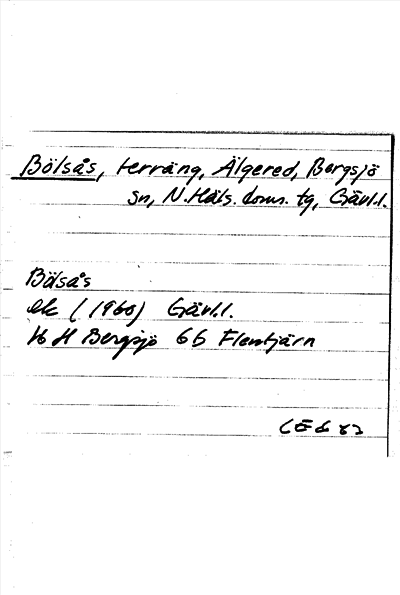 Bölsås, terräng, Älgered, Bergsjö
sn, N. Häls. doms. tg, Gävl.l.
Bölsås
ek (1960) Gävl.l.
16 H Bergsjö 6b Flentjärn